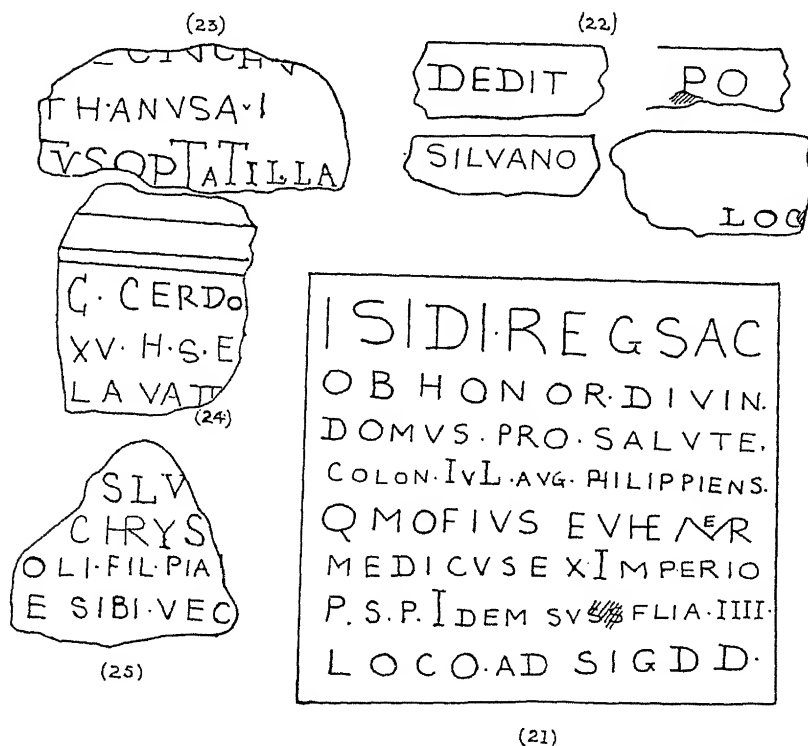 (23)
TH·ANVSA·I
TVSOPTATILLA
(22)
DEDIT
PO
SILVANO
LOC
G· CERDO
XV· H·S·E
LAVATII
(24)
SLV
CHRYS
OLI·FIL·PIA
E SIBI·VEC
(25)
ISIDI·REGSAC
OB HONOR·DIVIN.
DOMVS·PRO·SALVTE.
COLON·IVL·AVG·PHILIPPIENS.
QMOFIVS EVHEMER
MEDICVSEX·IMPERIO
P.S.P. IDEM SV FLIA·IIII·
LOCO·AD SIGDD·
(21)